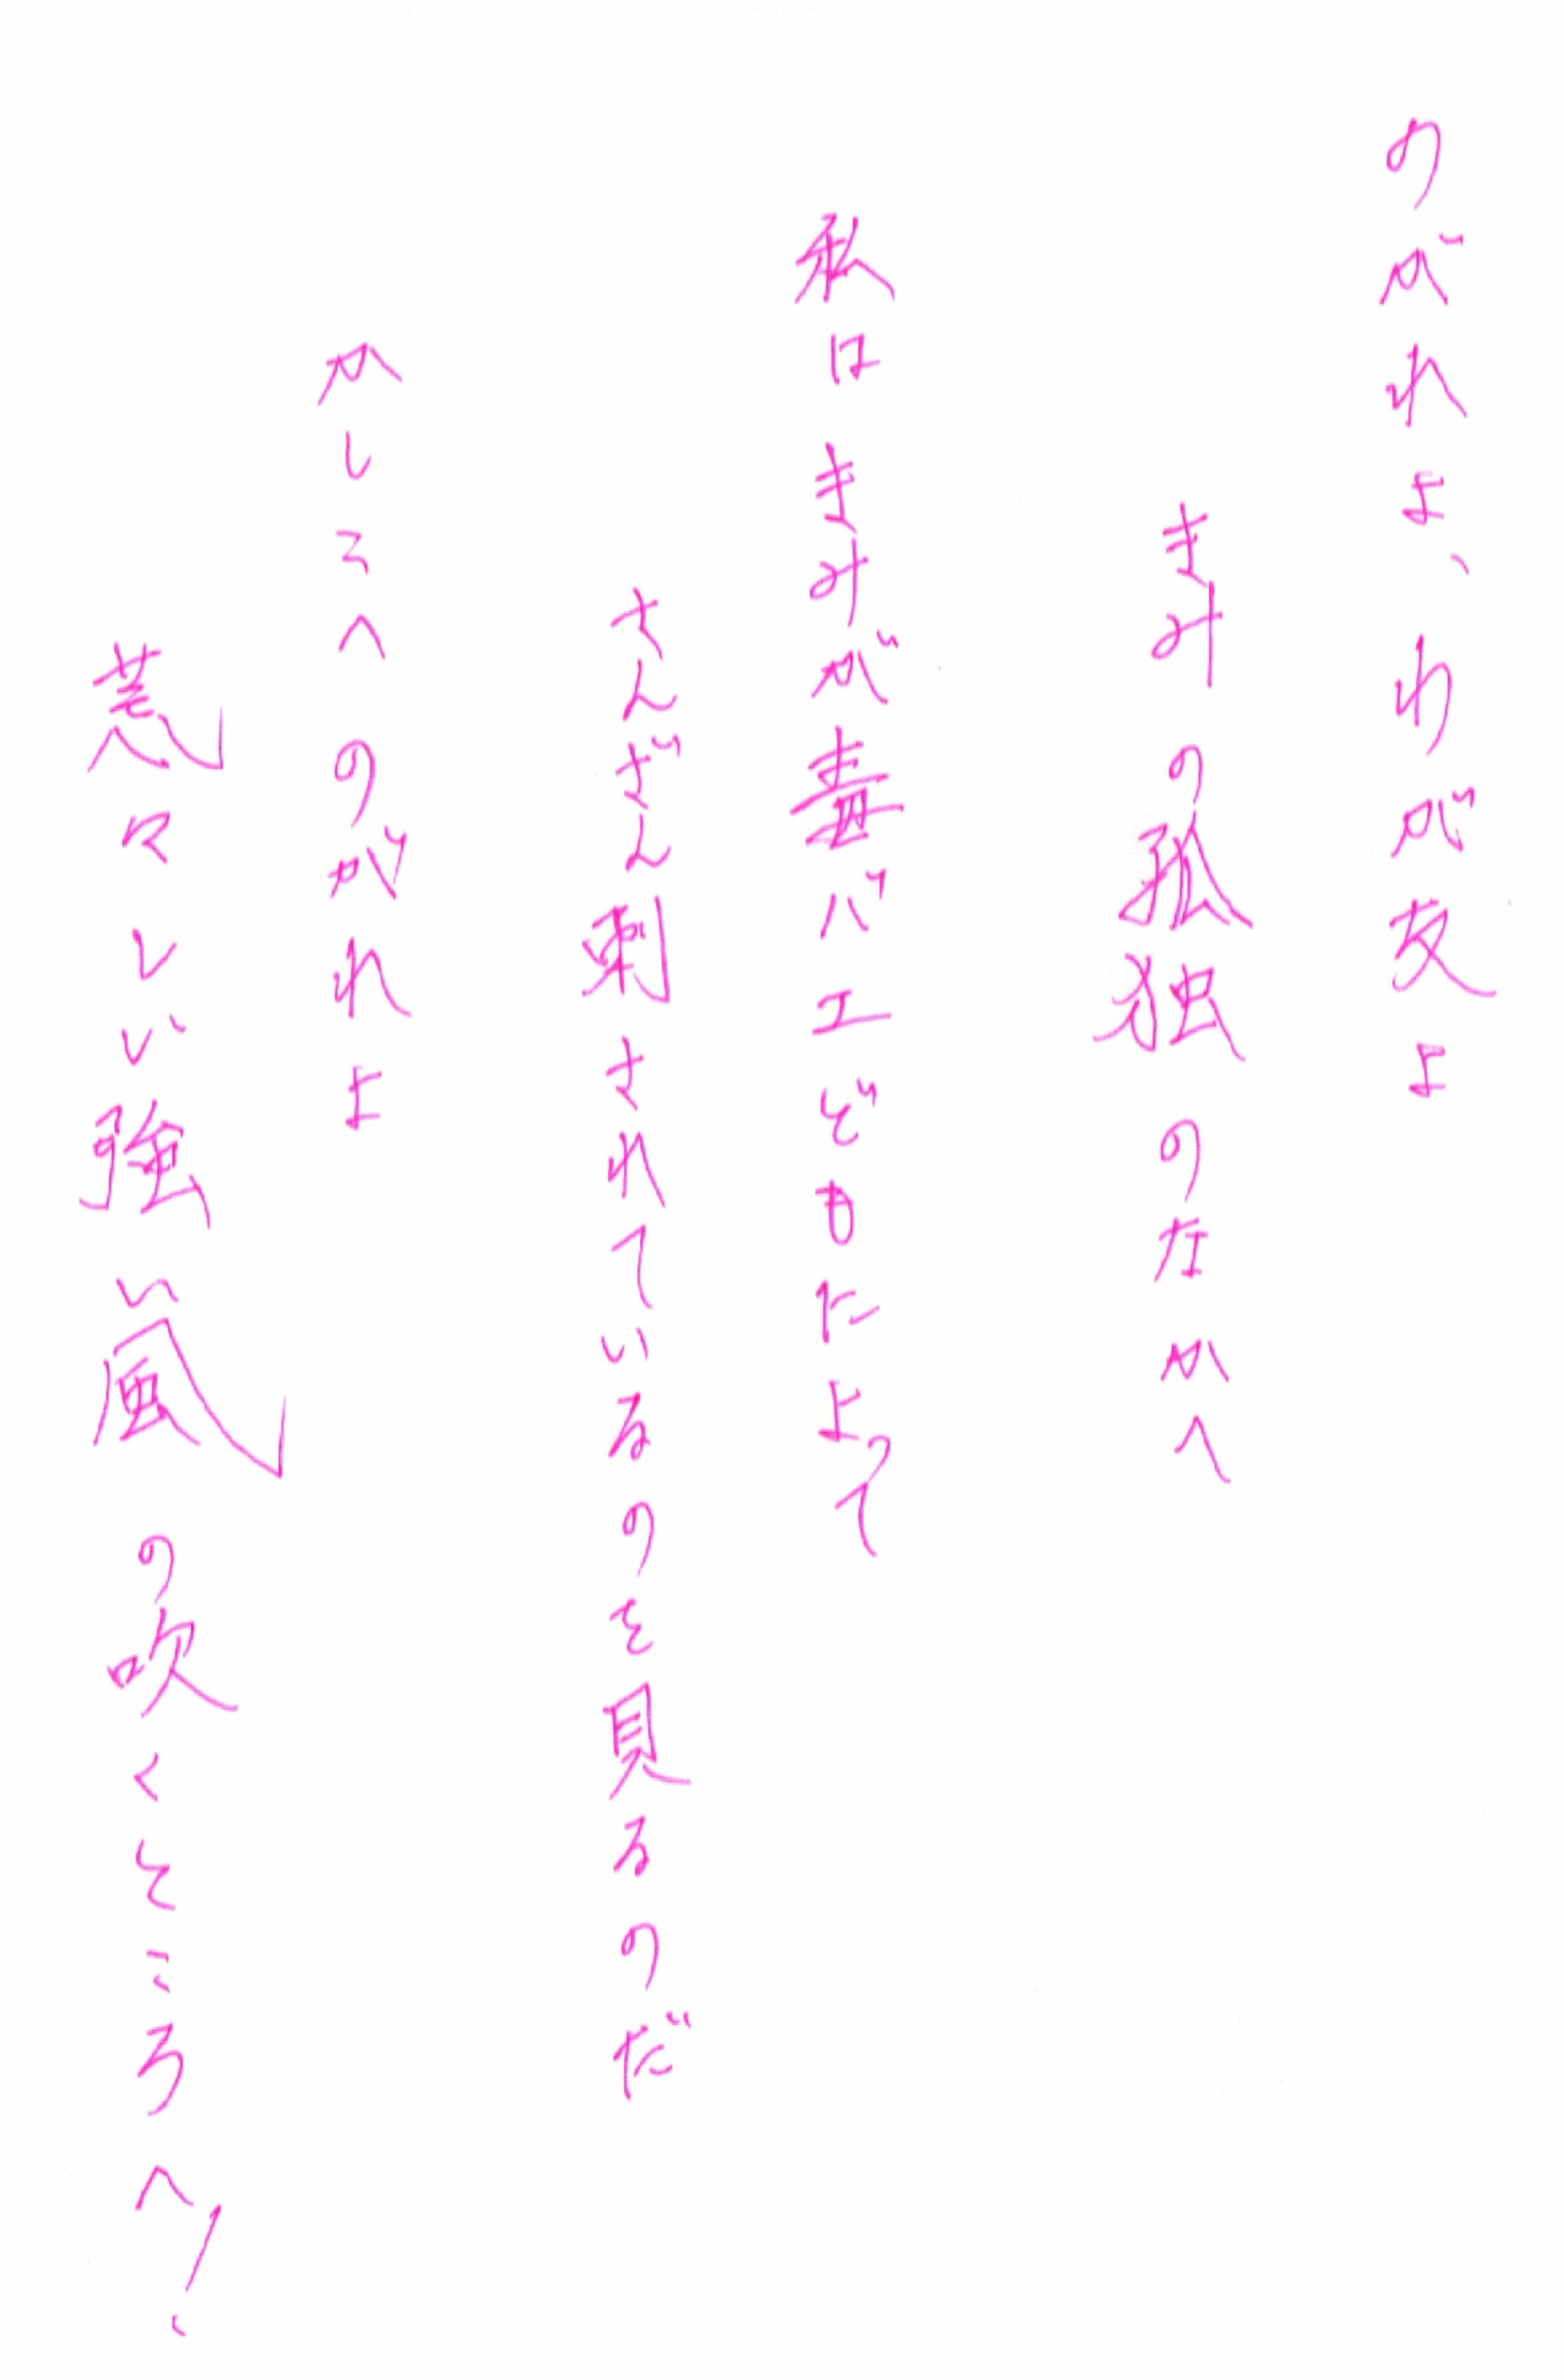 のがれよ、わが友よ
きみの孤独のなかへ
私はきみが毒バエどもによって
さんざん刺されているのを見るのだ
かしこへのがれよ
荒々しい強い風の吹くところへ!